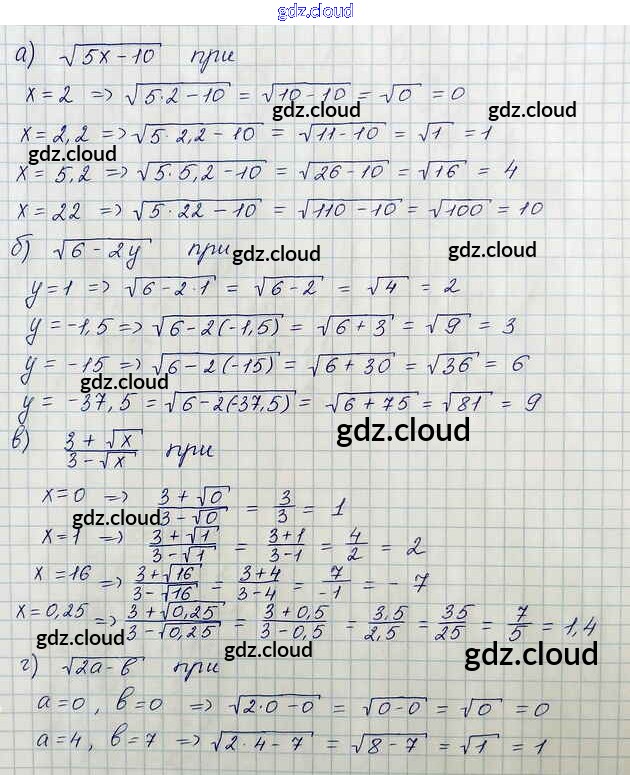 gdz.cloud
а) √(5x − 10) при
x = 2 => √(5·2 − 10) = √(10 − 10) = √0 = 0
gdz.cloud gdz.cloud
x = 2,2 => √(5·2,2 − 10) = √(11 − 10) = √1 = 1
gdz.cloud
x = 5,2 => √(5·5,2 − 10) = √(26 − 10) = √16 = 4
x = 22 => √(5·22 − 10) = √(110 − 10) = √100 = 10
б) √(6 − 2y) при
gdz.cloud gdz.cloud
y = 1 => √(6 − 2·1) = √(6 − 2) = √4 = 2
y = −1,5 => √(6 − 2(−1,5)) = √(6 + 3) = √9 = 3
y = −15 => √(6 − 2(−15)) = √(6 + 30) = √36 = 6
gdz.cloud
y = −37,5 = √(6 − 2(−37,5)) = √(6 + 75) = √81 = 9
gdz.cloud
в) (3 + √x)/(3 − √x) при
x = 0 => (3 + √0)/(3 − √0) = 3/3 = 1
gdz.cloud
x = 1 => (3 + √1)/(3 − √1) = (3 + 1)/(3 − 1) = 4/2 = 2
x = 16 => (3 + √16)/(3 − √16) = (3 + 4)/(3 − 4) = 7/−1 = −7
x = 0,25 => (3 + √0,25)/(3 − √0,25) = (3 + 0,5)/(3 − 0,5) = 3,5/2,5 = 35/25 = 7/5 = 1,4
gdz.cloud gdz.cloud gdz.cloud
г) √(2a − b) при
a = 0, b = 0 => √(2·0 − 0) = √(0 − 0) = √0 = 0
a = 4, b = 7 => √(2·4 − 7) = √(8 − 7) = √1 = 1